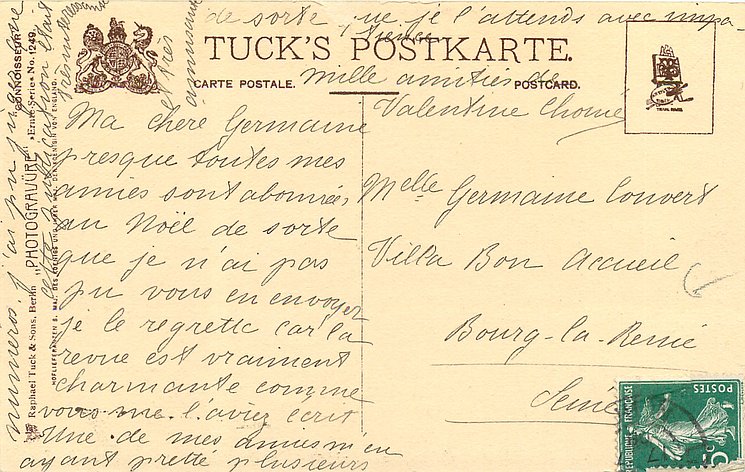 TUCK'S POSTKARTE.
CARTE POSTALE.
POSTCARD.
"CONNOISSEUR"
"PHOTOGRAVÜRE" Serie No. 1249.
Raphael Tuck & Sons, Berlin
Ma chère Germaine
presque toutes mes
amies sont abonnées
au Noël de sorte
que je n'ai pas
pu vous en envoyer
je le regrette car la
revue est vraiment
charmante comme
vous me l'aviez écrit
Une de mes amies m'en
ayant prêté plusieurs
numéros, j'ai pu juger
cette
très intéressante
et très
amusante
de sorte que je l'attends avec impa-
tience
Mille amitiés de
Valentine
Melle Germaine Convert
Villa Bon Accueil
Bourg-la-Reine
Seine
RÉPUBLIQUE FRANÇAISE
POSTES